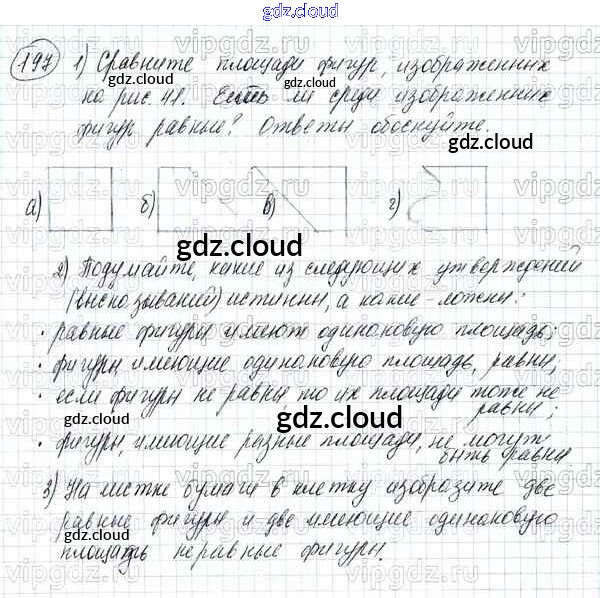 gdz.cloud
197 1) Сравните площади фигур, изображенных
на рис. 41. Есть ли среди изображенных
фигур равные? Ответы обоснуйте.
а) б) в) г)
gdz.cloud
2) Подумайте, какие из следующих утверждений
(высказываний) истинны, а какие - ложны:
· равные фигуры имеют одинаковую площадь;
· фигуры, имеющие одинаковую площадь, равны;
· если фигуры не равны то их площади тоже не
равны;
· фигуры, имеющие разные площади, не могут
быть равны
3) На листке бумаги в клетку изобразите две
равные фигуры и две имеющие одинаковую
площадь неравные фигуры.